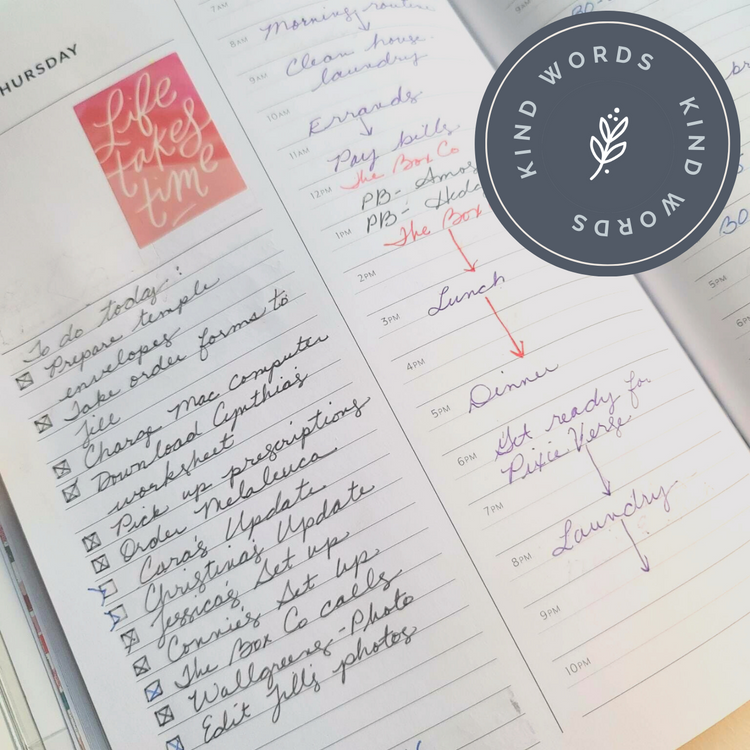 HURSDAY
Life
takes
time
To do today:
Prepare temple
envelopes
Take order forms to
Jill
Charge Mac Computer
Download Cynthia's
worksheet
Pick up prescriptions
Order Melaleuca
Cara's Update
Christina's Update
Jessica's Set up
Connie's Set Up
The Box Co calls
Wallgreens-Photo
Edit Jill's photos
7AM
Morning routine
8AM
Clean house-
9AM
laundry
10AM
Errands
11AM
Pay bills
The Box Co
12PM
PB- Amos
PB-
1PM
The Box
2PM
Lunch
3PM
4PM
Dinner
5PM
Get ready for
6PM
Pixie Verse
7PM
Laundry
8PM
9PM
10PM
KIND WORDS
KIND WORDS
KIND WORDS
9AM
30
5PM
6P